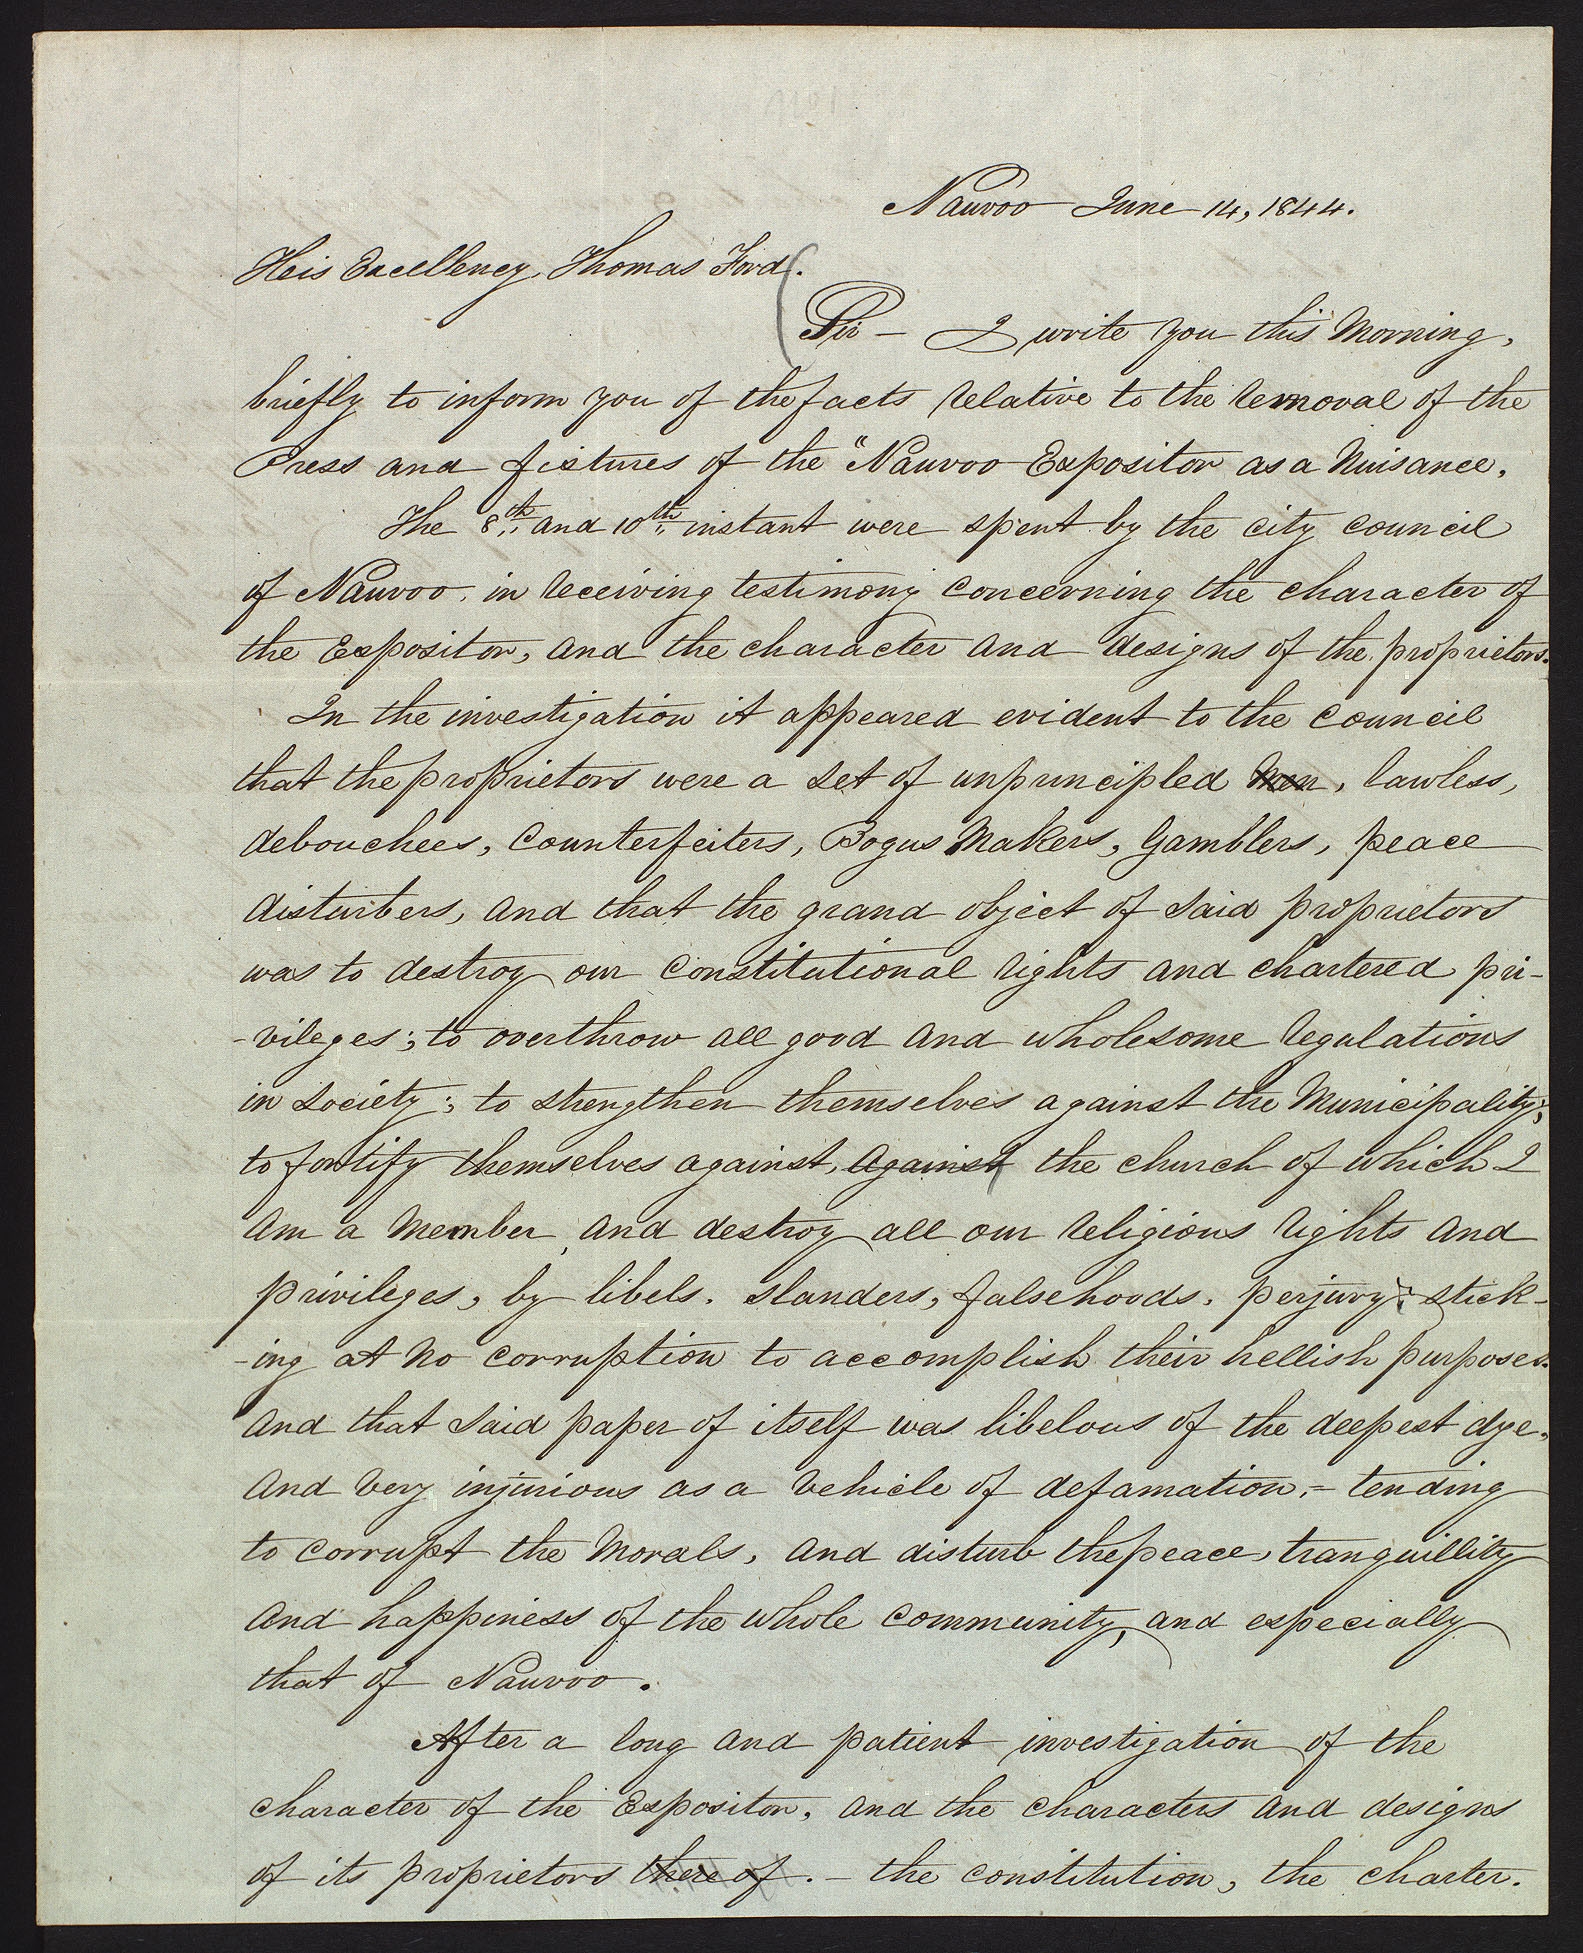 Nauvoo June 14, 1844.
His Excellency, Thomas Ford.
Sir — I write you this Morning,
briefly to inform you of the facts relative to the removal of the
Press and fixtures of the "Nauvoo Expositor as a Nuisance.
The 8th and 10th instant were spent by the city council
of Nauvoo, in receiving testimony concerning the character of
the Expositor, and the character and designs of the proprietors.
In the investigation it appeared evident to the council
that the proprietors were a set of unprincipled men, lawless,
debouchees, counterfeiters, Bogus Makers, Gamblers, peace
disturbers, and that the grand object of said proprietors
was to destroy our constitutional rights and chartered pri-
-vileges; to overthrow all good and wholesome regulations
in society; to strengthen themselves against the Municipality;
to fortify themselves against, against the church of which I
am a Member, and destroy all our religious rights and
privileges, by libels, slanders, falsehoods, perjury; stick-
-ing at no corruption to accomplish their hellish purposes.
and that said paper of itself was libelous of the deepest dye,
and very injurious as a vehicle of defamation, — tending
to corrupt the Morals, and disturb the peace, tranquillity
and happiness of the whole community, and especially
that of Nauvoo.
After a long and patient investigation of the
character of the Expositor, and the characters and designs
of its proprietors there of. — the constitution, the charter.